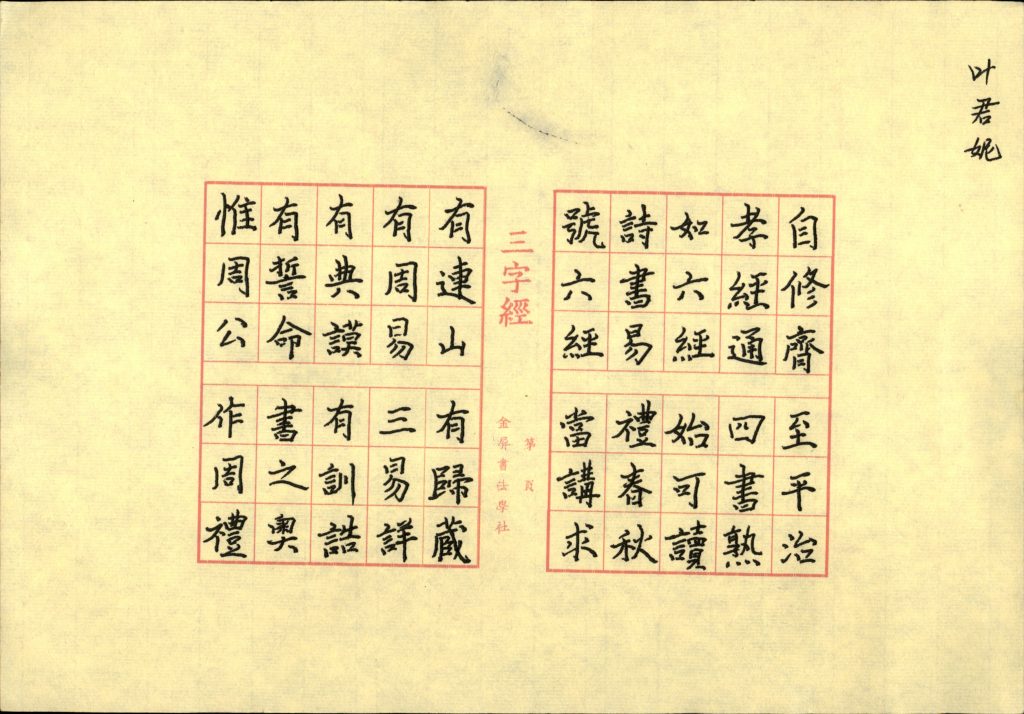 叶君妮
自修齊 至平治
孝經通 四書熟
如六經 始可讀
詩書易 禮春秋
號六經 當講求
三字經
第 頁
金屏書法學社
有連山 有歸藏
有周易 三易詳
有典謨 有訓誥
有誓命 書之奧
惟周公 作周禮